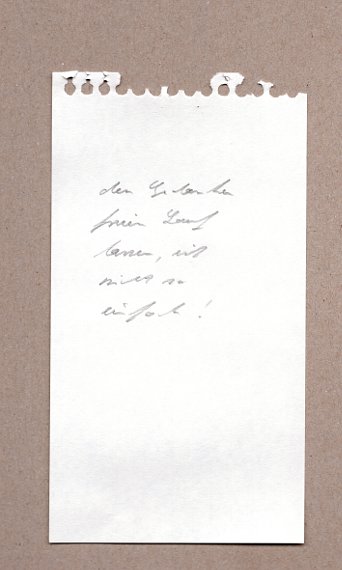 den Gedanken
freien Lauf
lassen, ist
nicht so
einfach!